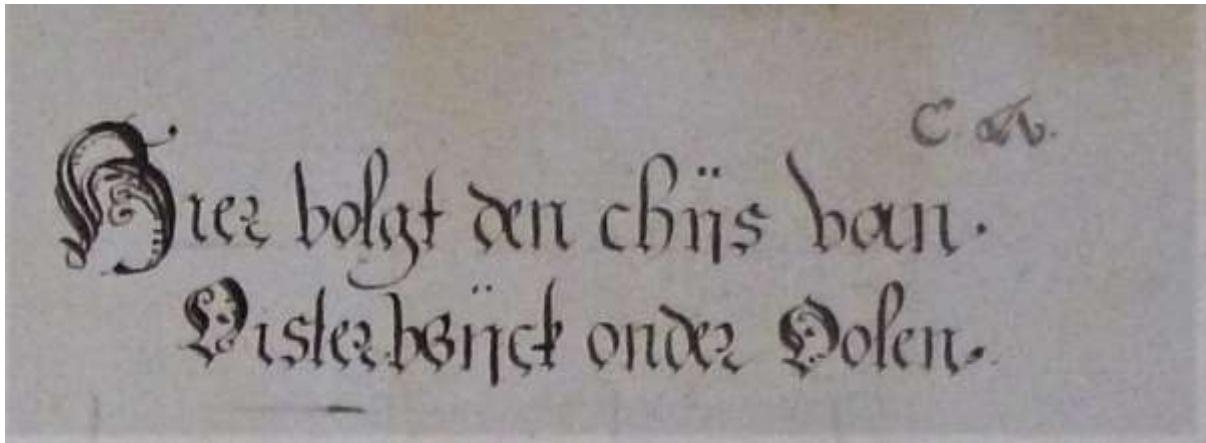 Hier volgt den chijs van.
Oisterwijck onder Oolen.